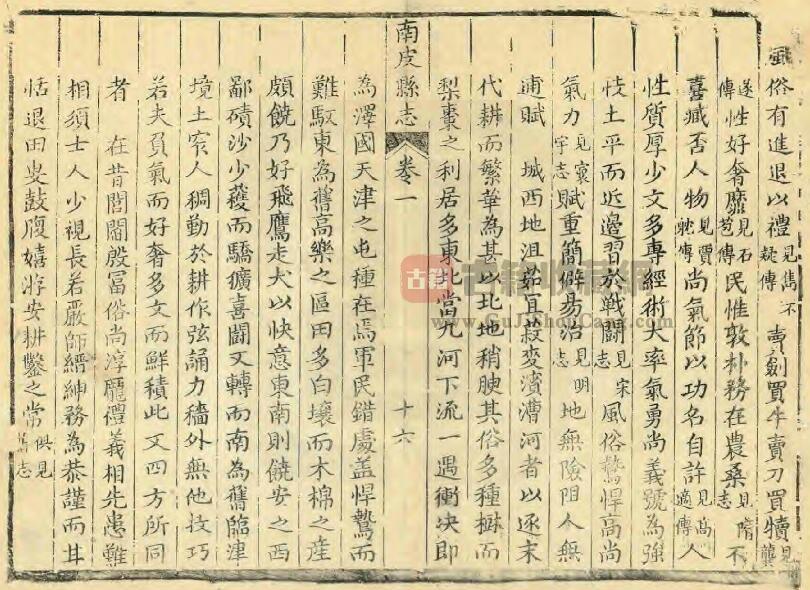 風俗有進退以禮見雋不疑傳賣劍買牛賣刀買犢見龔
遂傳性好奢靡見石苞傳民性敦朴務在農桑見隋志不
喜臧否人物見賈躭傳尚氣節以功名自許見高適傳人
性質厚少文多專經術大率氣勇尚義號為強
忮土平而近邊習於戰鬪見宋志風俗鷙悍高尚
氣力見寰宇志賦重簡僻易治見明志地無險阻人無
逋賦　城西地沮茹宜菽麥濱漕河者以逐末
代耕而繁華為甚以北地稍腴其俗多種樹而
梨棗之利居多東北當九河下流一遇衝決即
南皮縣志　卷一　十六
為澤國天津之屯種在焉軍民錯處盖悍鷙而
難馭東為舊高樂之區田多白壤而木棉之產
頗饒乃好飛鷹走犬以快意東南則饒安之西
鄙磧沙少穫而驕獷喜鬪又轉而南為舊臨津
境土窄人稠勤於耕作弦誦力穡外無他技巧
若夫負氣而好奢多文而鮮積此又四方所同
者　在昔閭閻殷富俗尚淳龐禮義相先患難
相須士人少視長若嚴師縉紳務為恭謹而甘
恬退田叟鼓腹嬉游安耕鑿之常俱見舊志
古籍
古籍收藏网